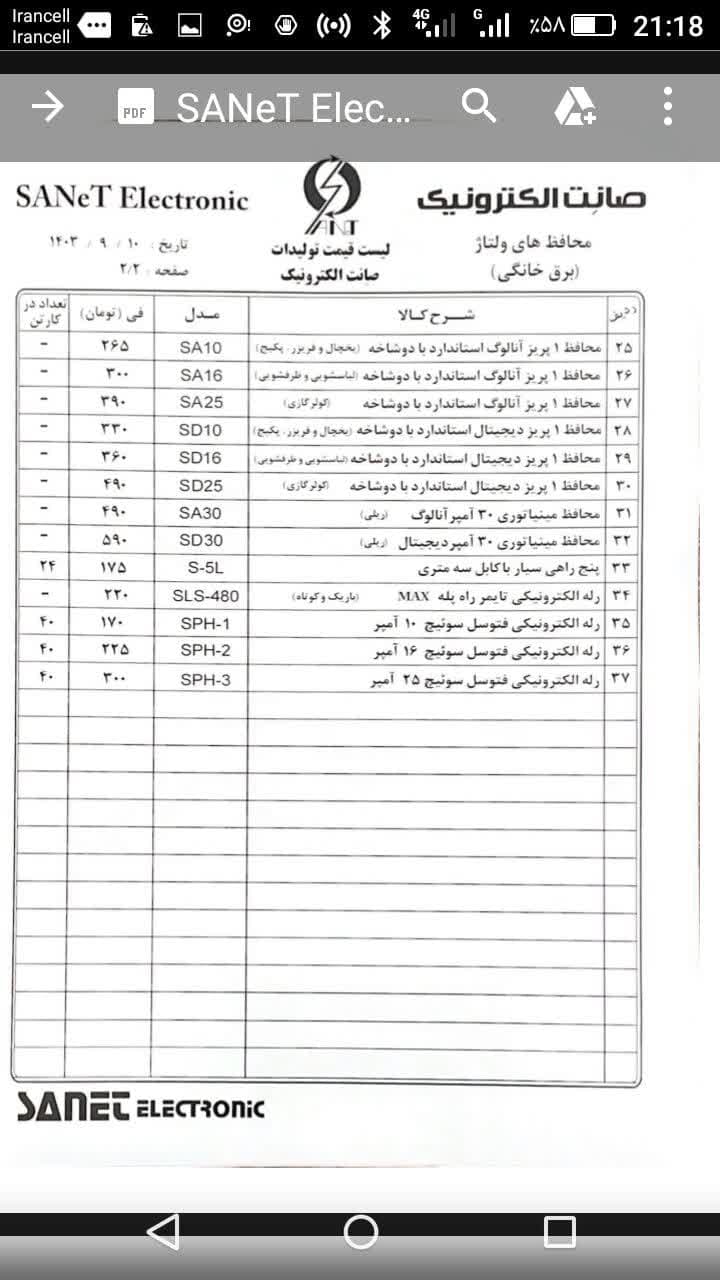 Irancell
Irancell
4G
G
٪۵۸
21:18
PDF SANeT Elec...
SANeT Electronic
SANT
صانِت الکترونیک
محافظ های ولتاژ
(برق خانگی)
لیست قیمت تولیدات
صانت الکترونیک
تاریخ : ۱۰ / ۹ / ۱۴۰۳
صفحه : ۲/۲
ردیف شــرح کـالا مـدل فی (تومان) تعداد در کارتن
۲۵ محافظ ۱ پریز آنالوگ استاندارد با دوشاخه (یخچال و فریزر . پکیج) SA10 ۲۶۵ -
۲۶ محافظ ۱ پریز آنالوگ استاندارد با دوشاخه (لباسشویی و ظرفشویی) SA16 ۳۰۰ -
۲۷ محافظ ۱ پریز آنالوگ استاندارد با دوشاخه (کولر گازی) SA25 ۳۹۰ -
۲۸ محافظ ۱ پریز دیجیتال استاندارد با دوشاخه (یخچال و فریزر . پکیج) SD10 ۳۳۰ -
۲۹ محافظ ۱ پریز دیجیتال استاندارد با دوشاخه (لباسشویی و ظرفشویی) SD16 ۳۶۰ -
۳۰ محافظ ۱ پریز دیجیتال استاندارد با دوشاخه (کولر گازی) SD25 ۴۹۰ -
۳۱ محافظ مینیاتوری ۳۰ آمپر آنالوگ (ریلی) SA30 ۴۹۰ -
۳۲ محافظ مینیاتوری ۳۰ آمپر دیجیتال (ریلی) SD30 ۵۹۰ -
۳۳ پنج راهی سیار با کابل سه متری S-5L ۱۷۵ ۲۴
۳۴ رله الکترونیکی تایمر راه پله MAX (باریک و کوتاه) SLS-480 ۲۲۰ -
۳۵ رله الکترونیکی فتوسل سوئیچ ۱۰ آمپر SPH-1 ۱۷۰ ۴۰
۳۶ رله الکترونیکی فتوسل سوئیچ ۱۶ آمپر SPH-2 ۲۲۵ ۴۰
۳۷ رله الکترونیکی فتوسل سوئیچ ۲۵ آمپر SPH-3 ۳۰۰ ۴۰
SANET ELECTRONIC